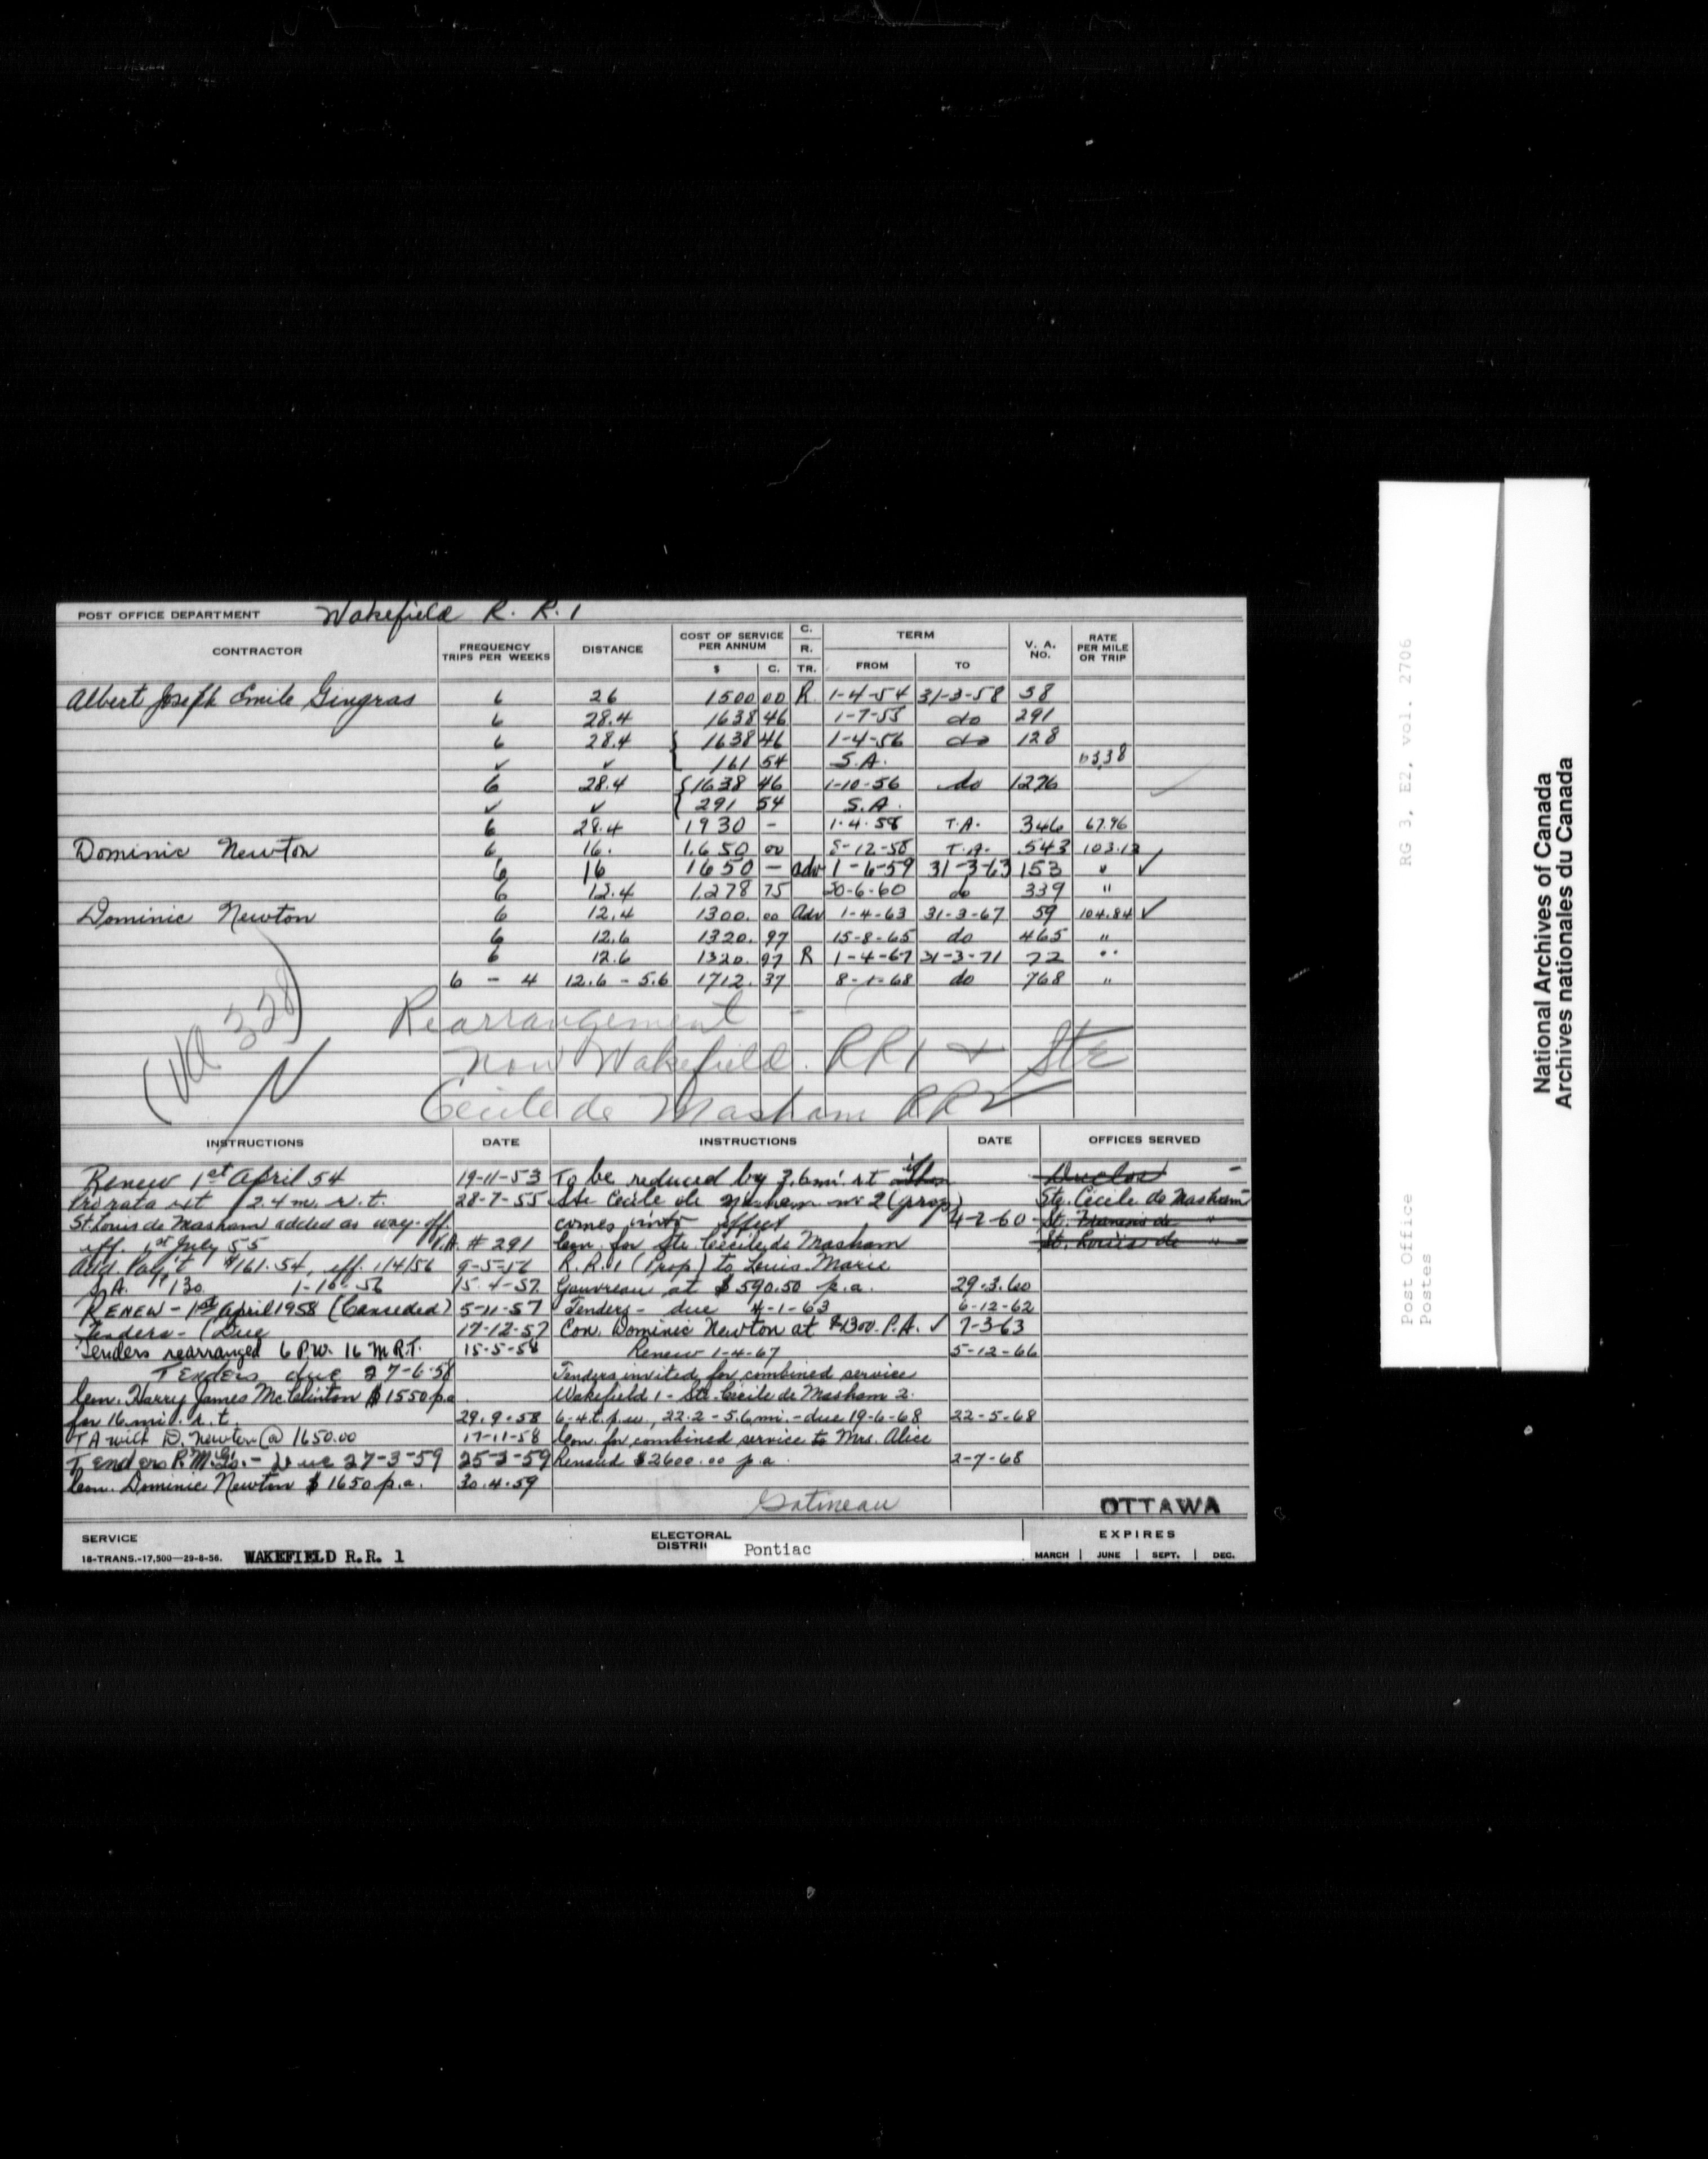 POST OFFICE DEPARTMENT Wakefield R. R. 1
CONTRACTOR FREQUENCY TRIPS PER WEEKS DISTANCE COST OF SERVICE PER ANNUM $ C. C. R. TR. TERM FROM TO V. A. NO. RATE PER MILE OR TRIP
Albert Joseph Emile Gingras 6 26 1500 00 R. 1-4-54 31-3-58 58
6 28.4 1638 46 1-7-55 do 291
6 28.4 1638 46 1-4-56 do 128
✓ ✓ 161 54 S.A. 6338
6 28.4 1638 46 1-10-56 do 1276
✓ ✓ 291 54 S.A.
6 28.4 1930 - 1-4-58 T.A. 346 67.96
Dominic Newton 6 16. 1,650 00 8-12-58 T.A. 543 103.13
6 16 1650 - adv 1-6-59 31-3-63 153 " ✓
6 12.4 1,278 75 20-6-60 do 339 "
Dominic Newton 6 12.4 1300. 00 Adv 1-4-63 31-3-67 59 104.84 ✓
6 12.6 1320. 97 15-8-65 do 465 "
6 12.6 1320. 97 R 1-4-67 31-3-71 72 "
6 - 4 12.6 - 5.6 1712. 37 8-1-68 do 768 "
Rearrangement -
now Wakefield. RR1 + Ste
Cecile de Masham RR2
N
INSTRUCTIONS DATE INSTRUCTIONS DATE OFFICES SERVED
Renew 1st April 54 19-11-53 To be reduced by 3.6 mi. rt if Duclos -
Pro rata ext 2.4 m. r.t. 28-7-55 Ste Cecile de Masham no 2 (prop) Ste. Cecile de Masham
St. Louis de Masham added as way-off. comes into effect 4-2-60 St. Francois de "
eff. 1st July 55 V.A. # 291 Con. for Ste. Cecile de Masham St. Louis de "
Add. Pay't $161.54, eff. 1/4/56 9-5-56 R.R.1 (Prop) to Louis Marie
S.A. $130. 1-10-56 15-4-57 Gauvreau at $590.50 p.a. 29-3-60
RENEW - 1st April 1958 (Canceded) 5-11-57 Tenders - due 4-1-63 6-12-62
Tenders - (Due 17-12-57 Con. Dominic Newton at $1300. P.A. ✓ 7-3-63
Tenders rearranged 6 P.W. 16 M R.T. 15-5-58 Renew 1-4-67 5-12-66
Tenders due 27-6-58 Tenders invited for combined service
Con. Harry James McClinton $1550 p.a. Wakefield 1 - Ste. Cecile de Masham 2.
for 16 mi. r.t. 29-9-58 6-4 t.p.w., 22.2 - 5.6 mi. - due 19-6-68 22-5-68
T A with D. Newton @ 1650.00 17-11-58 Con. for combined service to Mrs. Alice
Tenders P.M.Gs. - Due 27-3-59 25-2-59 Renaud $2600.00 p.a. 2-7-68
Con. Dominic Newton $1650 p.a. 30-4-59
Gatineau OTTAWA
SERVICE ELECTORAL EXPIRES
18-TRANS.-17,500—29-8-56. WAKEFIELD R.R. 1 DISTRI Pontiac MARCH | JUNE | SEPT. | DEC.
RG 3, E2, vol. 2706
Post Office
Postes
National Archives of Canada
Archives nationales du Canada